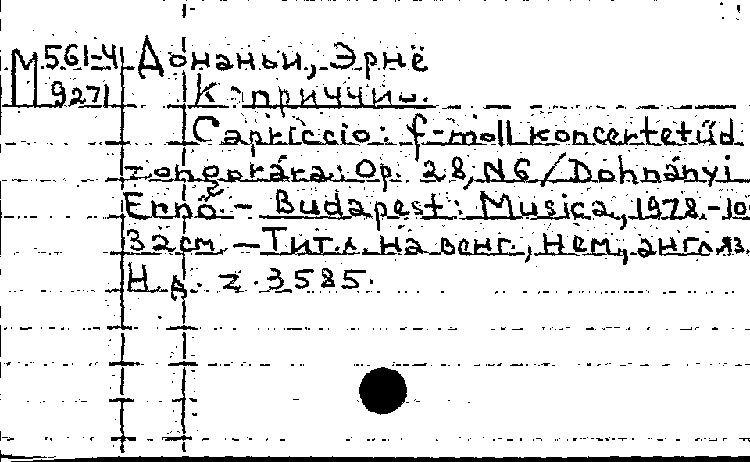 М 561-4 Донаньи, Эрнё
9271 Каприччио.
Capriccio: f-moll koncertetűd
zongorára: Op. 28, N6 / Dohnányi
Ernő. - Budapest: Musica, 1978. - 10
32 см. - Тит. л. на венг., нем., англ. яз.
Н. д. Z. 3585.